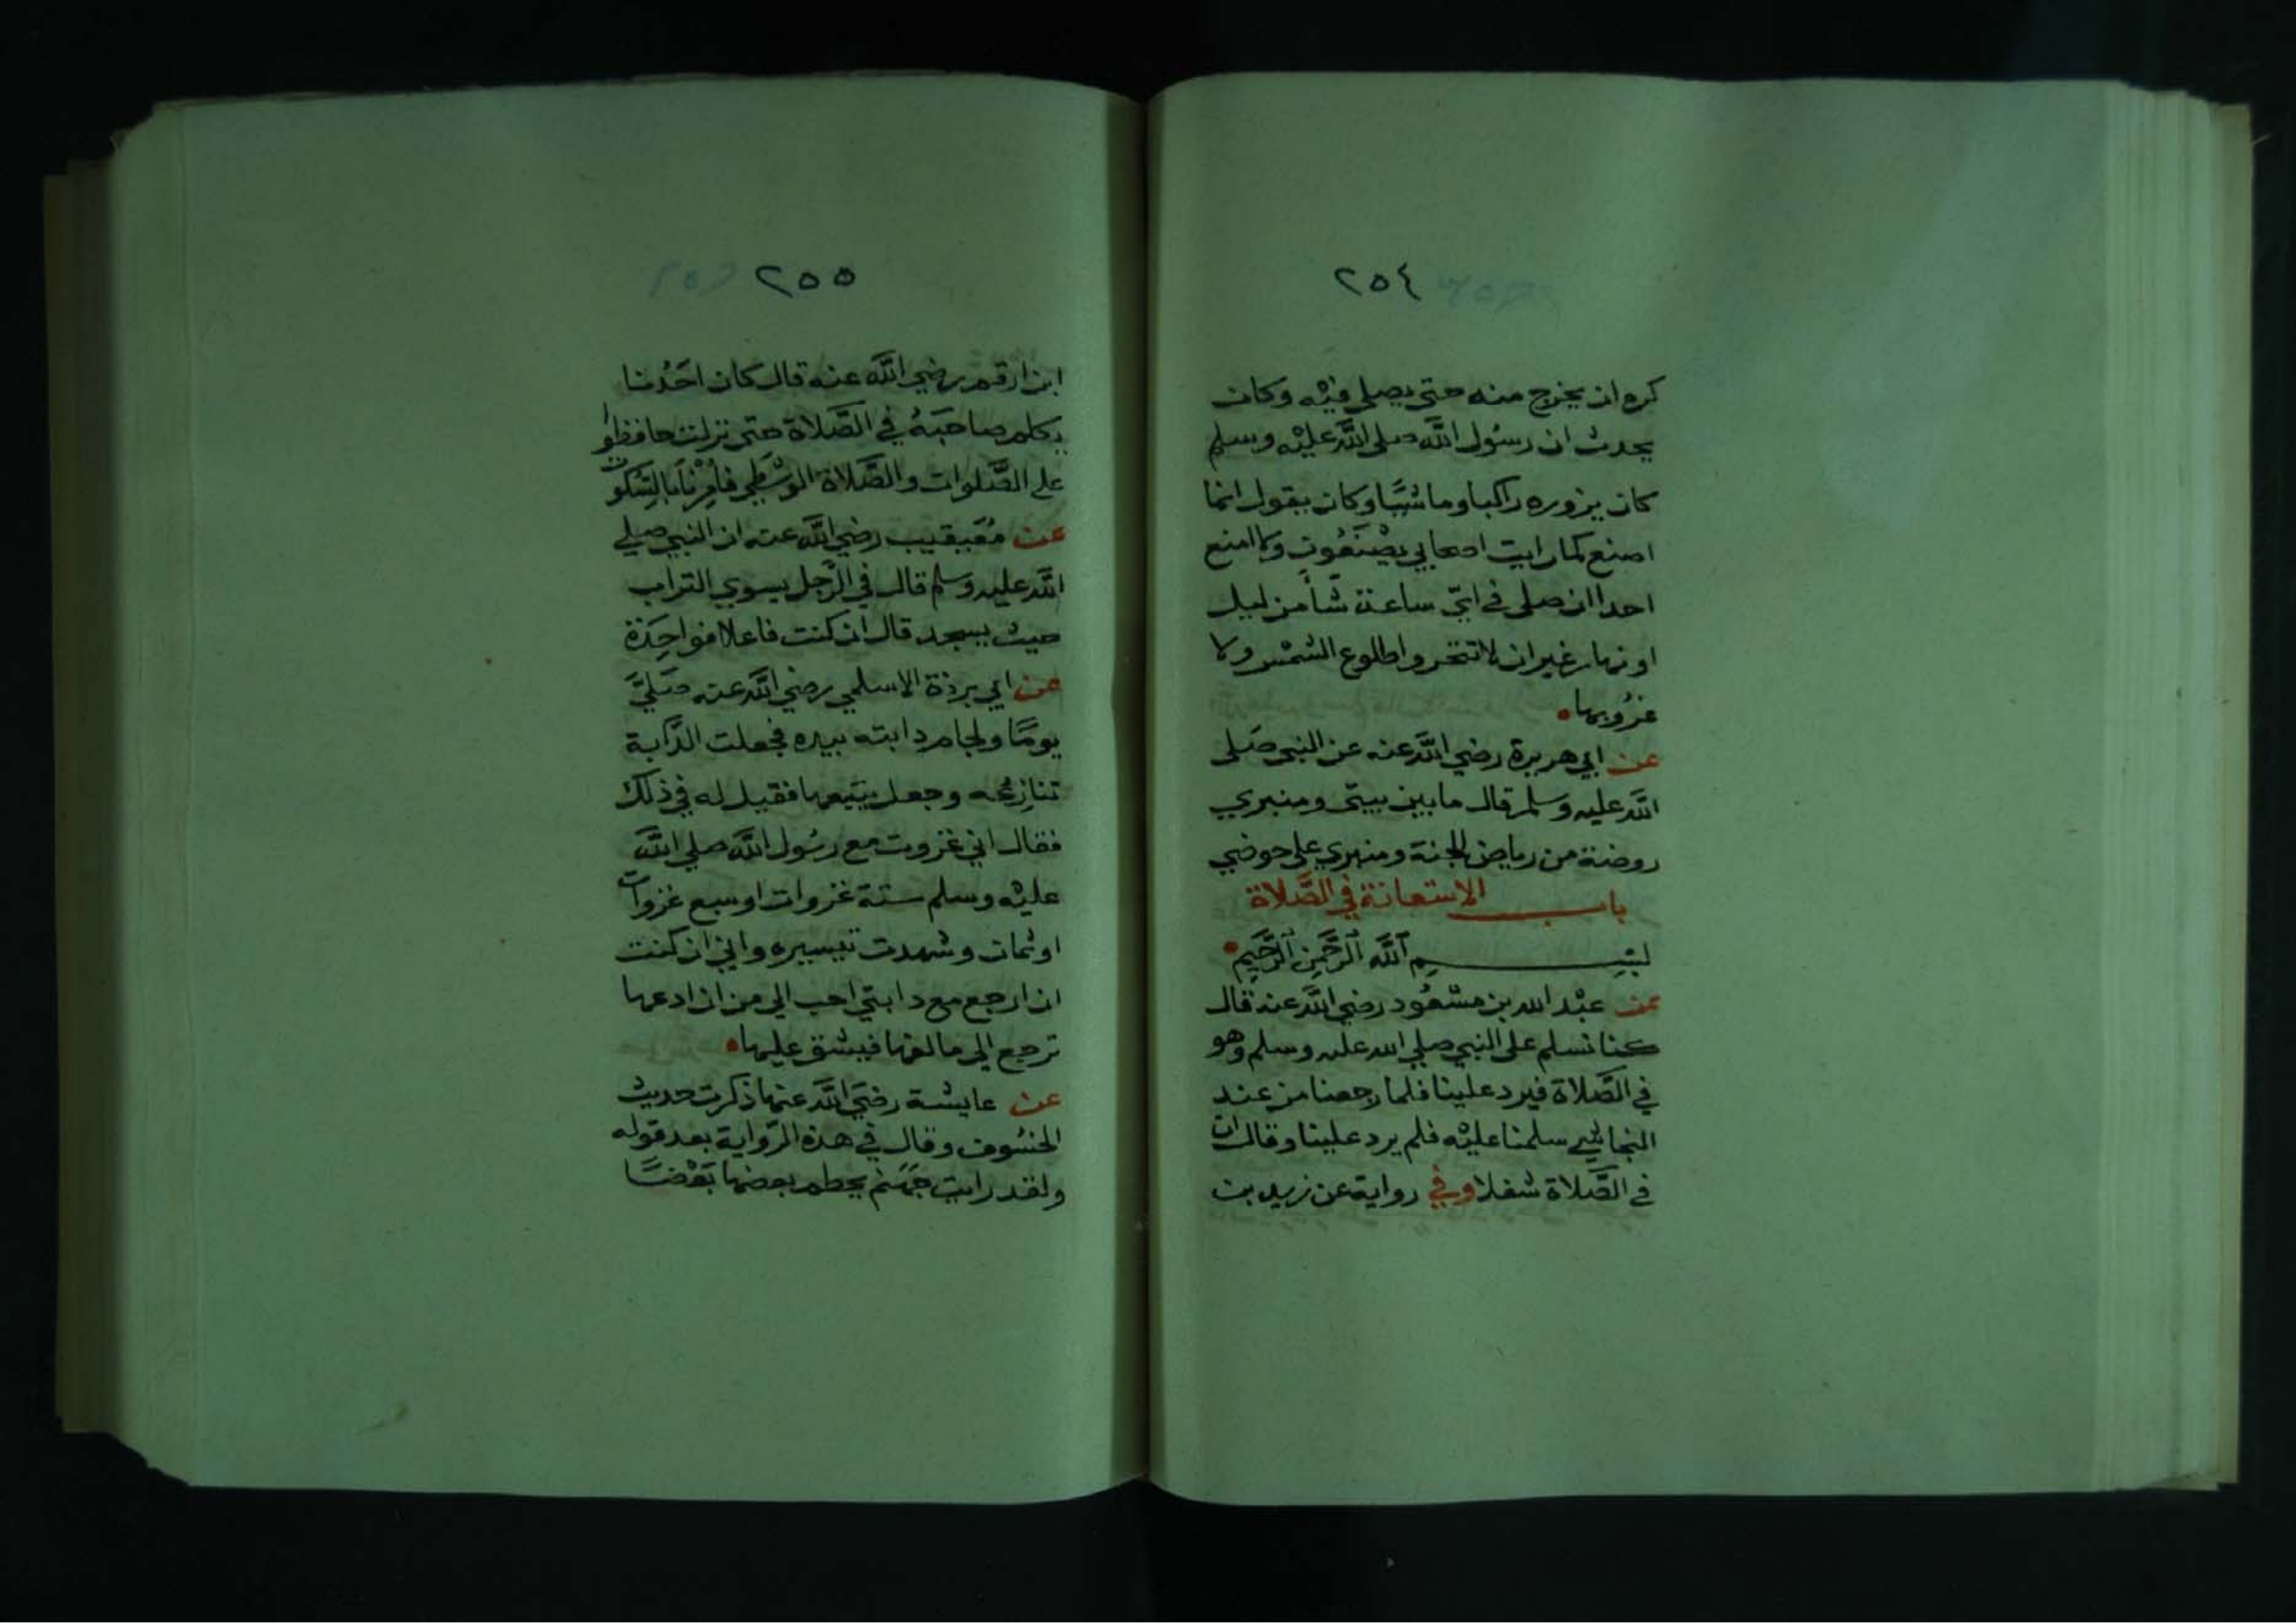 ٢٥٤
كره ان يخرج منه حتى يصلي فيْه وكان
يحدث ان رسُول اللَّه صلى اللَّه عليْه وسلم
كان يزوره راكبا وماشيًا وكان يقول انما
اصنع كما رايت اصحابي يصْنَعُون ولا امنع
احدا ان صلى في ايّ ساعة شأ من ليل
او نهار غير ان لا تتحروا طلوع الشمْس ولا
غرُوبها
عن ابي هريرة رضي اللَّه عنه عن النبي صَلى
اللَّه عليه وسلم قال ما بين بيتي ومنبري
روضة من رياض الجنة ومنبري على حوضي
باب الاستعانة في الصَّلاة
بسْم اللَّه الرَّحمن الرَّحيم
عن عبْد الله بن مسْعُود رضي اللَّه عنه قال
كنا نسلم على النبي صلي الله عليه وسلم وهو
في الصَّلاة فيرد علينا فلما رجعنا من عند
النجاشي سلمنا عليْه فلم يرد علينا وقال ان
في الصَّلاة شغلا وفي رواية عن زيد بن
٢٥٥
ابن ارقم رضي اللَّه عنه قال كان احَدُنا
يكلم صاحبَهُ في الصَّلاة حتى نزلت حافظوا
على الصَّلوات والصَّلاة الوسْطي فأمِرْنَا بالسّكوت
عن مُعَيقيب رضي اللَّه عنه ان النبي صلي
اللَّه عليه وسلم قال في الرَّجل يسوي التراب
حيث يسجد قال ان كنت فاعلا فواحِدَة
عن ابي برزة الاسلمي رضي اللَّه عنه صَليَّ
يومًا ولجام دابته بيده فجعلت الدَّابة
تنازِعُه وجعل يتبعها فقيل له في ذلك
فقال اني غزوت مع رسُول اللَّه صلي اللَّه
عليْه وسلم ستة غزوات او سبع غزوات
او ثمان وشهدت تيسيره واني ان كنت
ان ارجع مع دابتي احب الي من ان ادعها
ترجع الي مالفها فيشق عليها
عن عايشة رضيَ اللَّه عنها ذكرت حديث
الخسُوف وقال في هذه الرّواية بعد قوله
ولقد رايت جَهَنم يحطم بعضها بَعْضًا